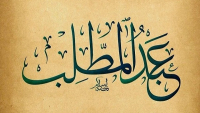 عبد المطلب